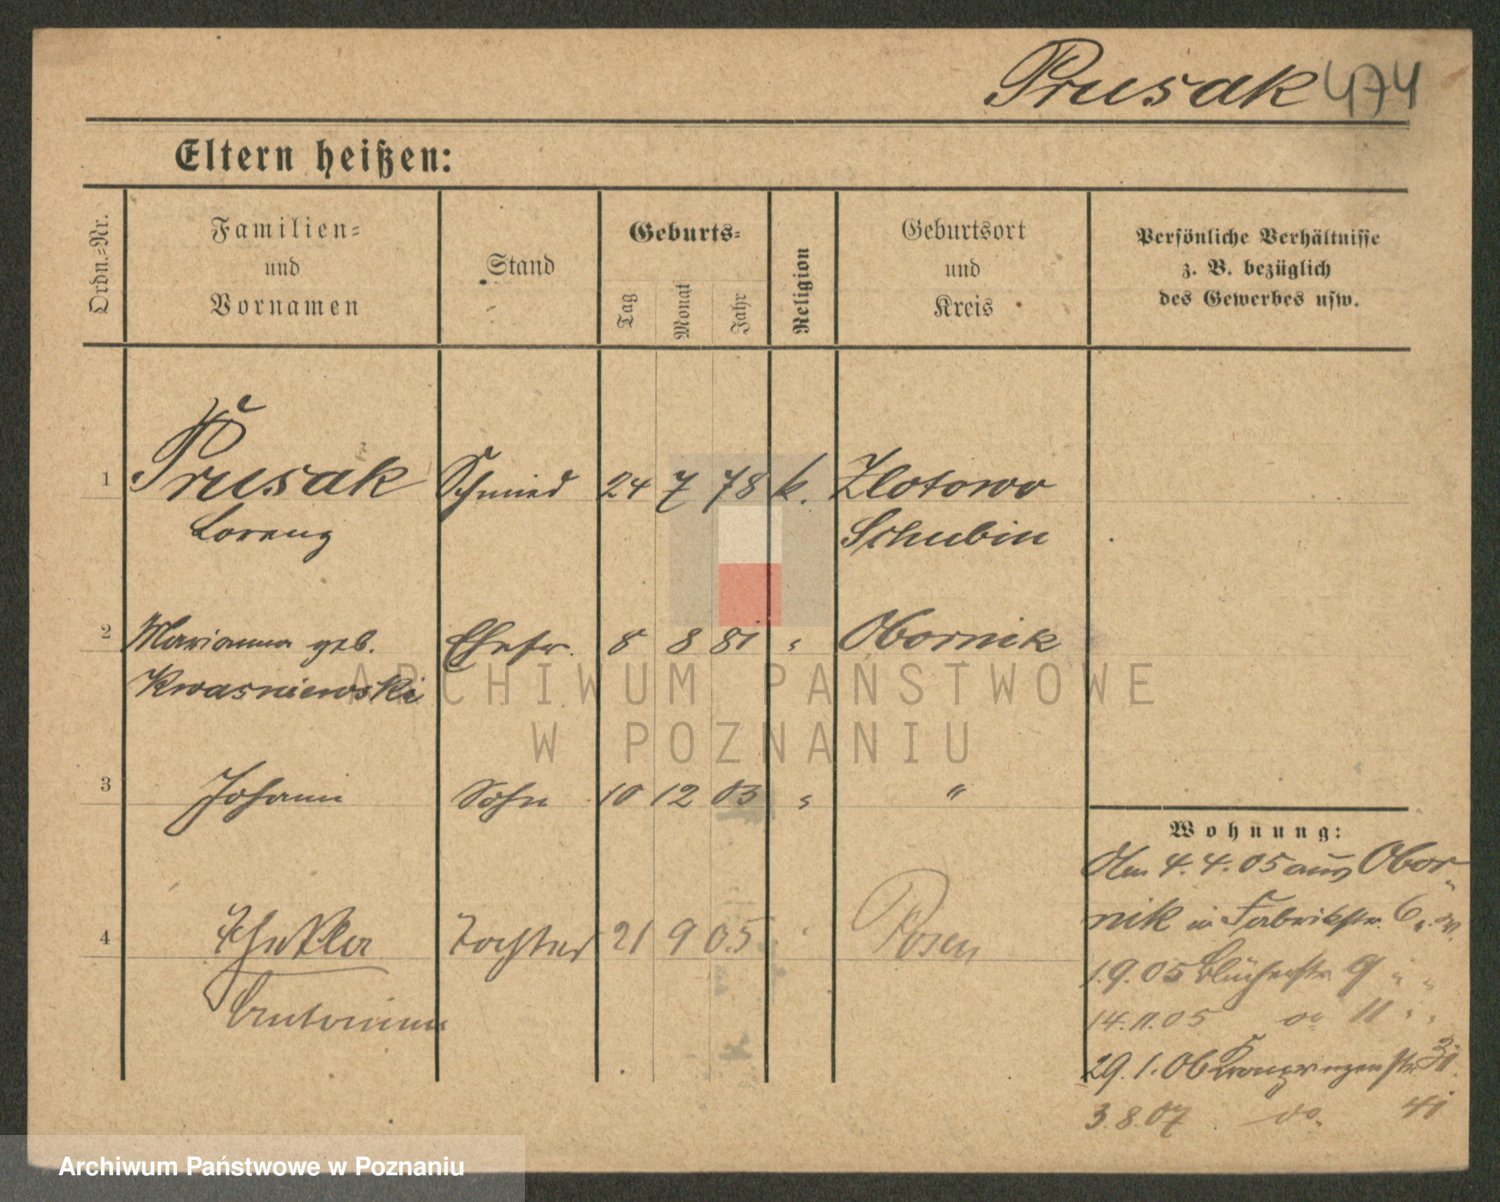 Prusak 474
Eltern heißen:
Ordn.-Nr.
Familien- und Vornamen
Stand
Geburts-
Tag
Monat
Jahr
Religion
Geburtsort und Kreis
Persönliche Verhältnisse
z. B. bezüglich
des Gewerbes usw.
1 Prusak Schmied 24 7 78 k. Zlotowo
Lorenz Schubin
2 Marianna geb. Ehefr. 8 8 81 " Obornik
Kwasniewski
3 Johann Sohn 10 12 03 " "
Wohnung:
4.4.05 aus Obor-
nik in Fabrikstr. 6
4 Thekla Tochter 21 9 05 " Posen
Antonina
1.9.05 Blücherstr. 9 " "
14.11.05 do 11 " "
29.1.06 Kronprinzenstr.
3.8.07 do.
ARCHIWUM PAŃSTWOWE
W POZNANIU
Archiwum Państwowe w Poznaniu